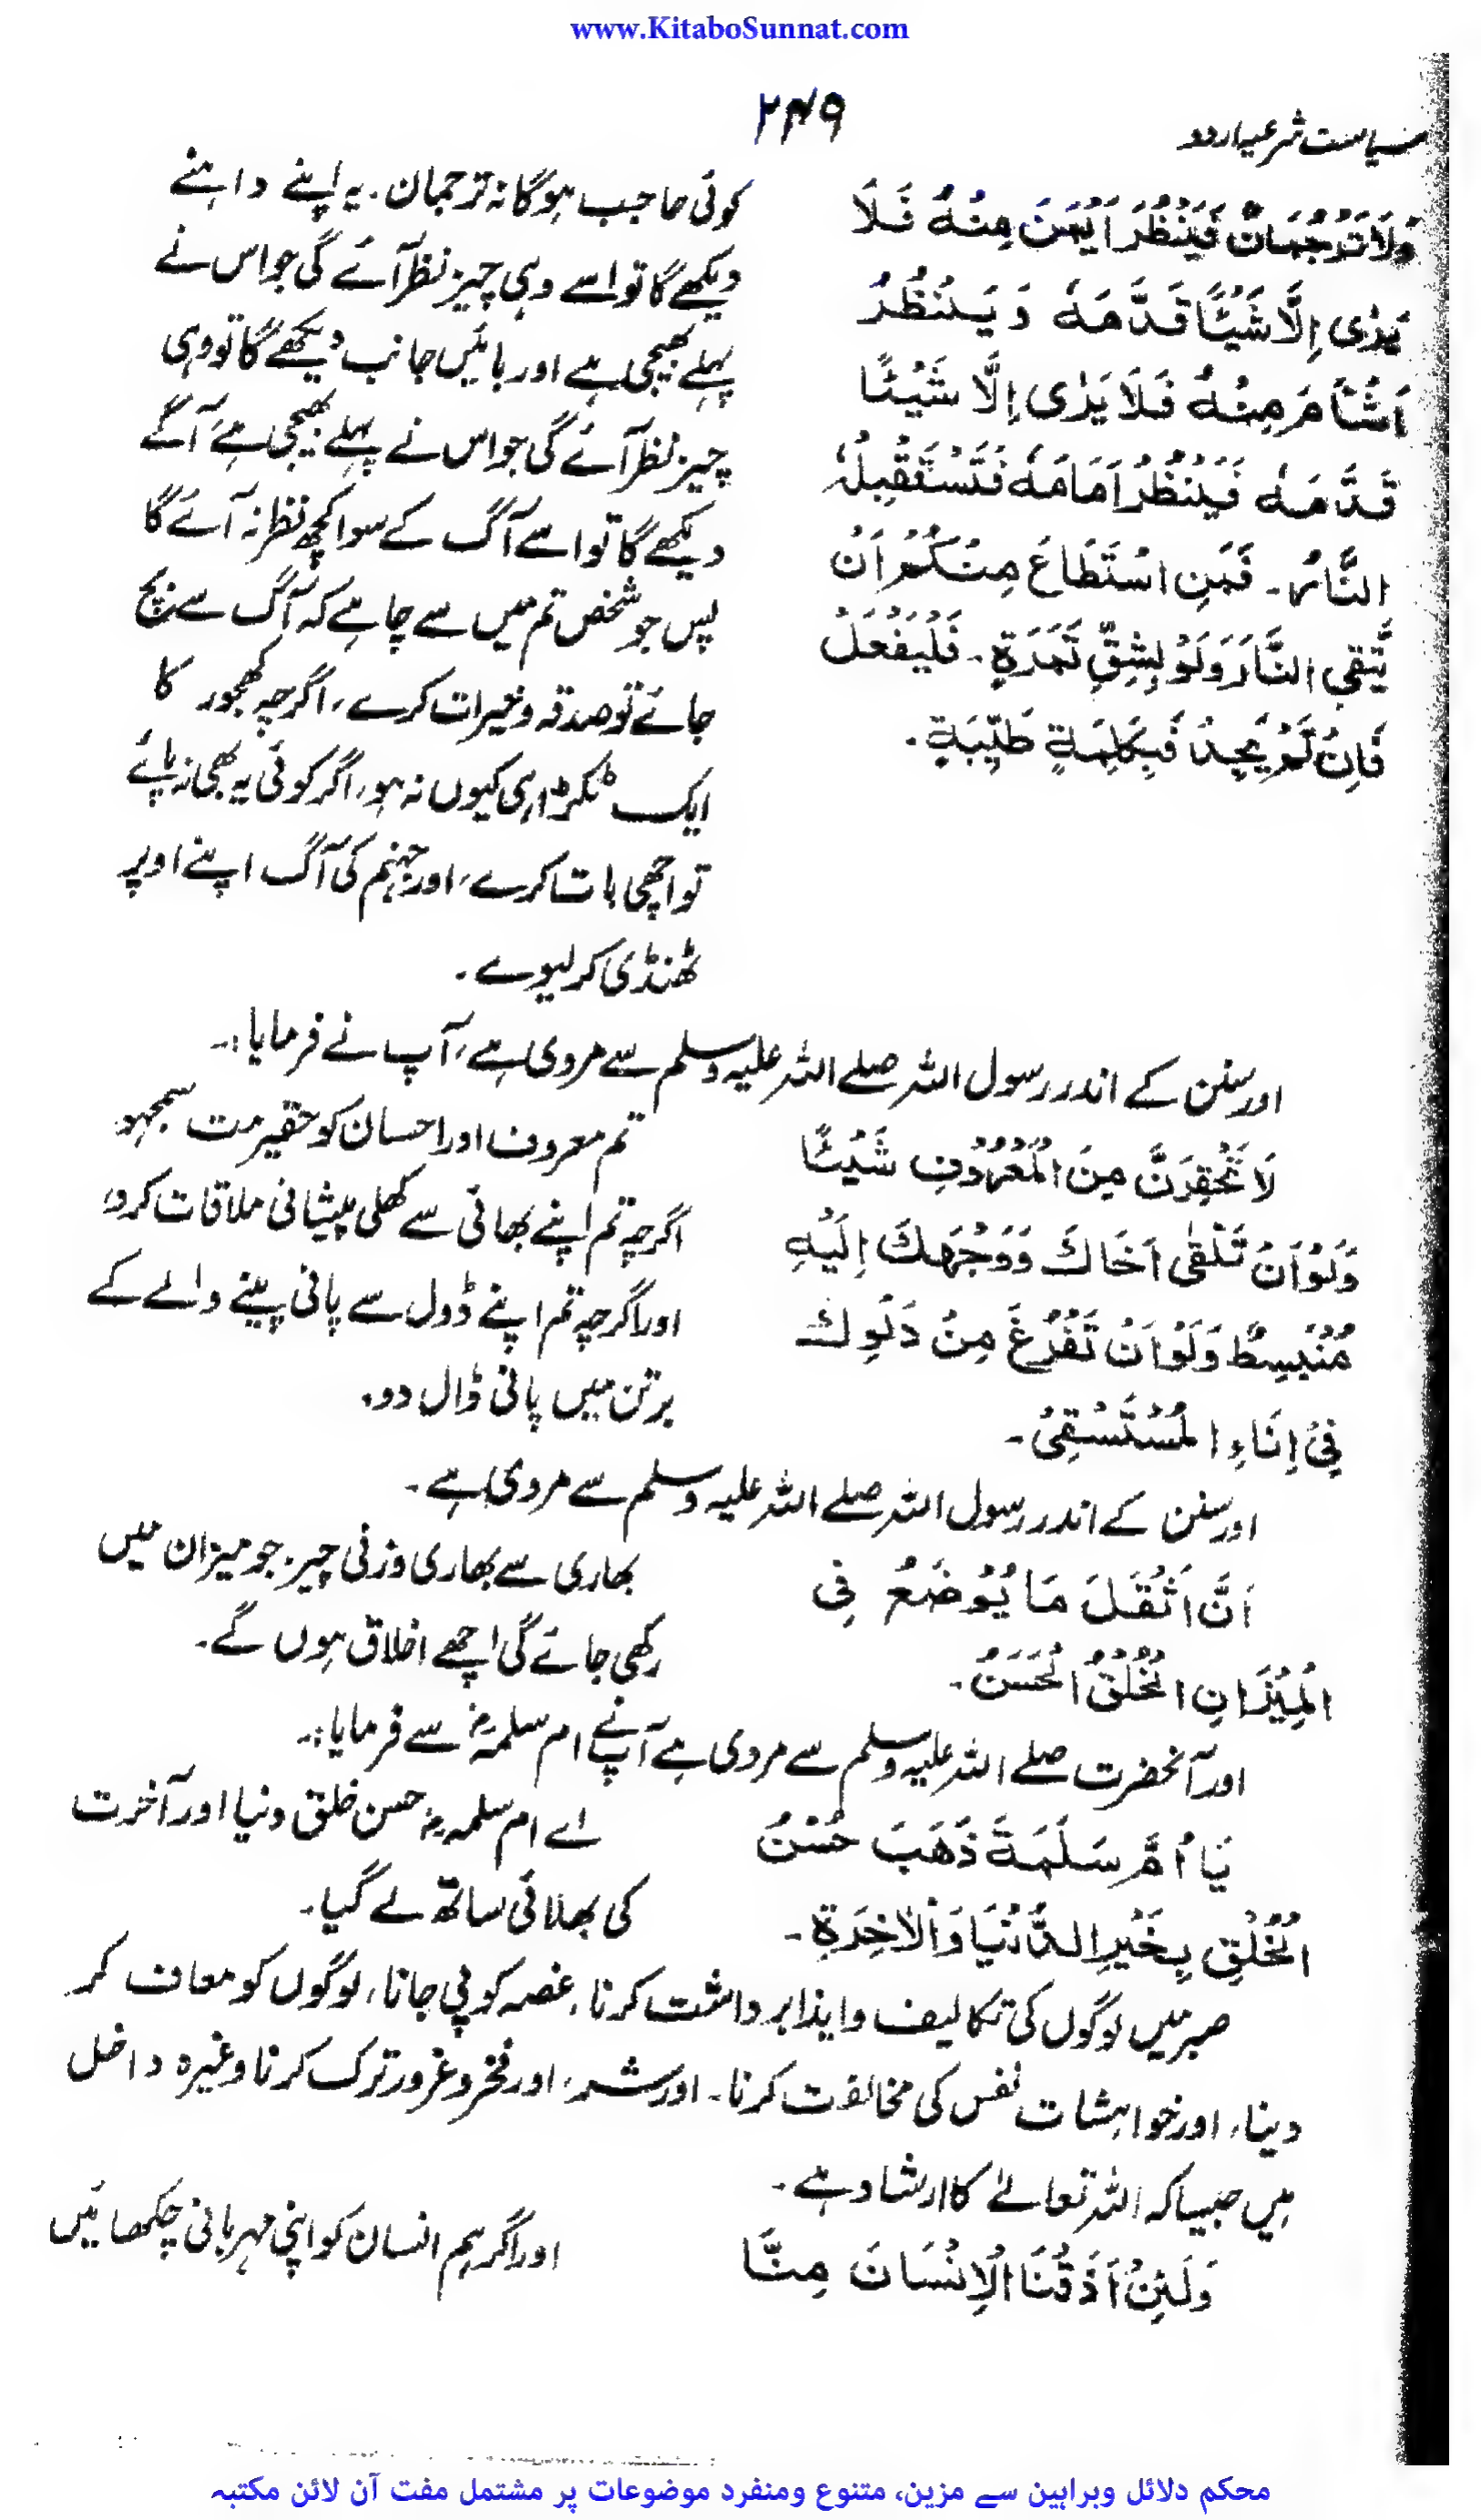 www.KitaboSunnat.com
۲۴۹
سیاست شرعیہ اردو
وَلَا تَرْجُمَانٌ فَيَنْظُرَ اَيْمَنَ مِنْهُ فَلَا
يَرٰى اِلَّا شَيْئًا قَدَّمَهٗ وَيَنْظُرُ
اَشْأَمَ مِنْهُ فَلَا يَرٰى اِلَّا شَيْئًا
قَدَّمَهٗ فَيَنْظُرُ اَمَامَهٗ فَتَسْتَقْبِلُهٗ
النَّارُ۔ فَمَنِ اسْتَطَاعَ مِنْكُمْ اَنْ
يَّتَّقِى النَّارَ وَلَوْ بِشِقِّ تَمَرَةٍ۔ فَلْيَفْعَلْ
فَاِنْ لَّمْ يَجِدْ فَبِكَلِمَةٍ طَيِّبَةٍ۔
کوئی حاجب ہوگا نہ ترجمان۔ یہ اپنے داہنے
دیکھے گا تو اسے وہی چیز نظر آئے گی جو اس نے
پہلے بھیجی ہے اور بائیں جانب دیکھے گا تو وہی
چیز نظر آئے گی جو اس نے پہلے بھیجی ہے، آگے
دیکھے گا تو اسے آگ کے سوا کچھ نظر نہ آئے گا
پس جو شخص تم میں سے چاہے کہ آگ سے بچ
جائے تو صدقہ و خیرات کرے، اگرچہ کھجور کا
ایک ٹکڑا ہی کیوں نہ ہو، اگر کوئی یہ بھی نہ پائے
تو اچھی بات کرے، اور جہنم کی آگ اپنے اوپر
ٹھنڈی کر لیوے۔
اور سنن کے اندر رسول اللہ صلے اللہ علیہ وسلم سے مروی ہے، آپ نے فرمایا:۔
لَا تَحْقِرَنَّ مِنَ الْمَعْرُوْفِ شَيْئًا
وَلَوْ اَنْ تَلْقٰى اَخَاكَ وَوَجْهُكَ اِلَيْهِ
مُنْبَسِطٌ وَلَوْ اَنْ تَفْرُغَ مِنْ دَلْوِكَ
فِىْ اِنَاءِ الْمُسْتَسْقِىْ۔
تم معروف اور احسان کو حقیر مت سمجھو
اگرچہ تم اپنے بھائی سے کھلی پیشانی ملاقات کرو،
اور اگرچہ تم اپنے ڈول سے پانی پینے والے کے
برتن میں پانی ڈال دو۔
اور سنن کے اندر رسول اللہ صلے اللہ علیہ وسلم سے مروی ہے۔
اَنَّ اَثْقَلَ مَا يُوْضَعُ فِى
الْمِيْزَانِ الْخُلْقُ الْحَسَنُ۔
بھاری سے بھاری وزنی چیز جو میزان میں
رکھی جائے گی اچھے اخلاق ہوں گے۔
اور آنحضرت صلے اللہ علیہ وسلم سے مروی ہے آپ نے ام سلمہؓ سے فرمایا:۔
يَا اُمَّ سَلَمَةَ ذَهَبَ حُسْنُ
الْخُلْقِ بِخَيْرِ الدُّنْيَا وَالْاٰخِرَةِ۔
اے ام سلمہؓ حسن خلق دنیا اور آخرت
کی بھلائی ساتھ لے گیا۔
صبر میں لوگوں کی تکالیف و ایذا برداشت کرنا، غصہ کو پی جانا، لوگوں کو معاف کر
دینا، اور خواہشات نفس کی مخالفت کرنا۔ اور شر، اور فخر و غرور ترک کرنا وغیرہ داخل
ہیں جیسا کہ اللہ تعالےٰ کا ارشاد ہے۔
وَلَئِنْ اَذَقْنَا الْاِنْسَانَ مِنَّا
اور اگر ہم انسان کو اپنی مہربانی چکھائیں
محکم دلائل وبراہین سے مزین، متنوع ومنفرد موضوعات پر مشتمل مفت آن لائن مکتبہ